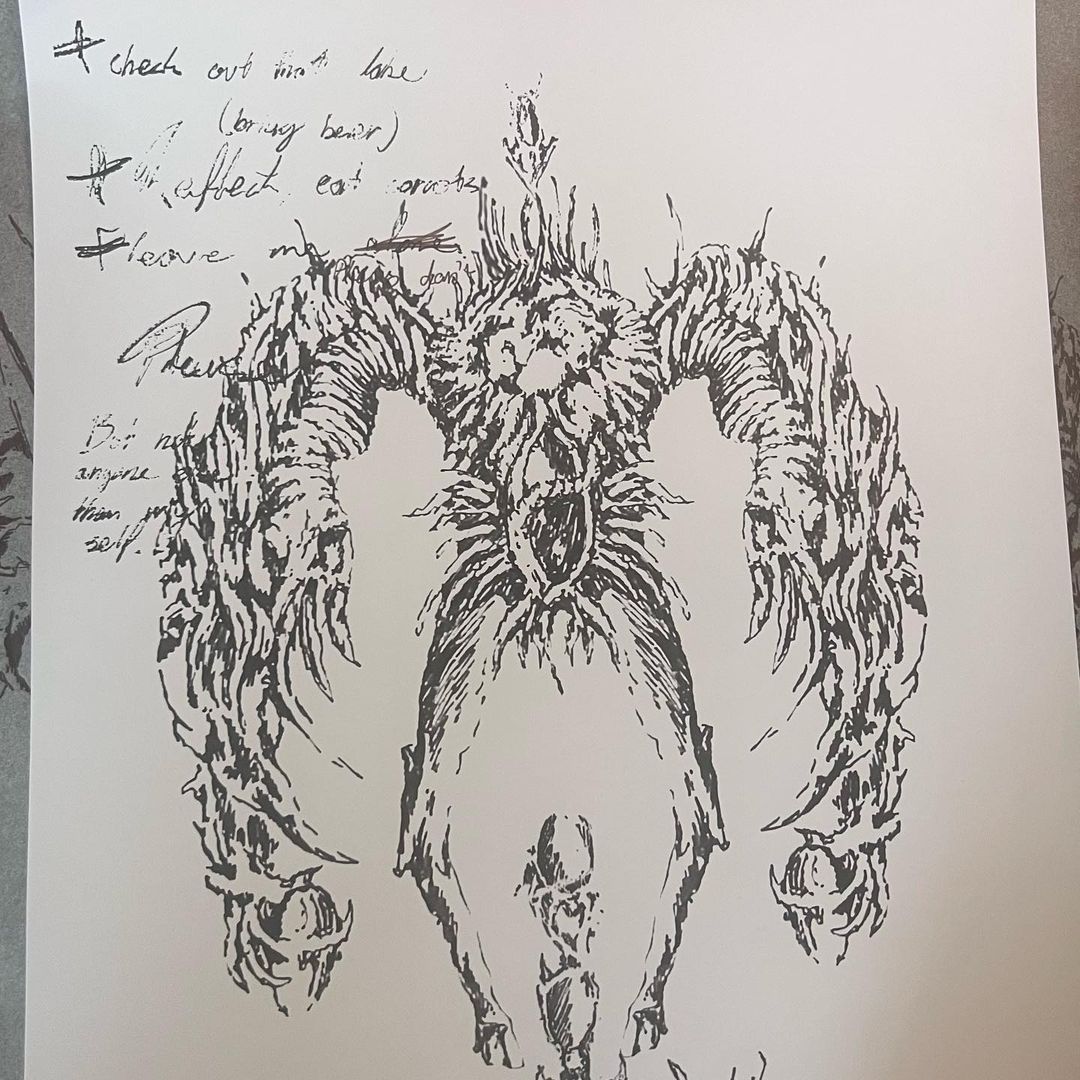 check out that lake
(bring beer)
Reflect, eat carrots
leave me alone
please don't
Please
But not
anyone
than my
self.